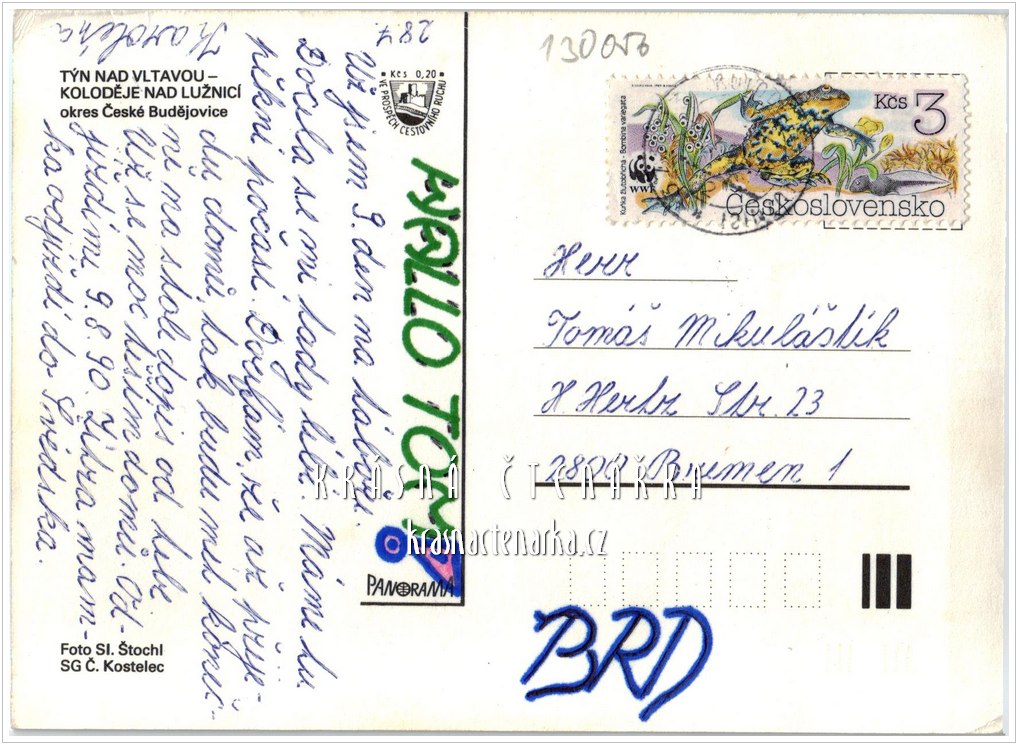 28.7.
Už jsem 9. den na táboře.
Docela se mi tady líbí. Máme tu
pěkné počasí. Doufám, že až přije-
du domů, tak budu mít, koneč-
ně na stole dopis od tebe.
Už se moc těším domů. Od-
jíždíme 9.8.90.
ka odjíždí do Švédska.
Karolína
TÝN NAD VLTAVOU –
KOLODĚJE NAD LUŽNICÍ
okres České Budějovice
Kčs 0,20
VE PROSPĚCH CESTOVNÍHO RUCHU
HALLO TOM
PANORAMA
Foto Sl. Štochl
SG Č. Kostelec
Kuňka žlutobřichá - Bombina variegata
WWF
Kčs 3
Československo
Herr
Tomáš Mikuláštík
H. Hertz Str. 23
2800 Bremen 1
BRD
KRÁSNÁ ČTENÁŘKA
krasnactenarka.cz